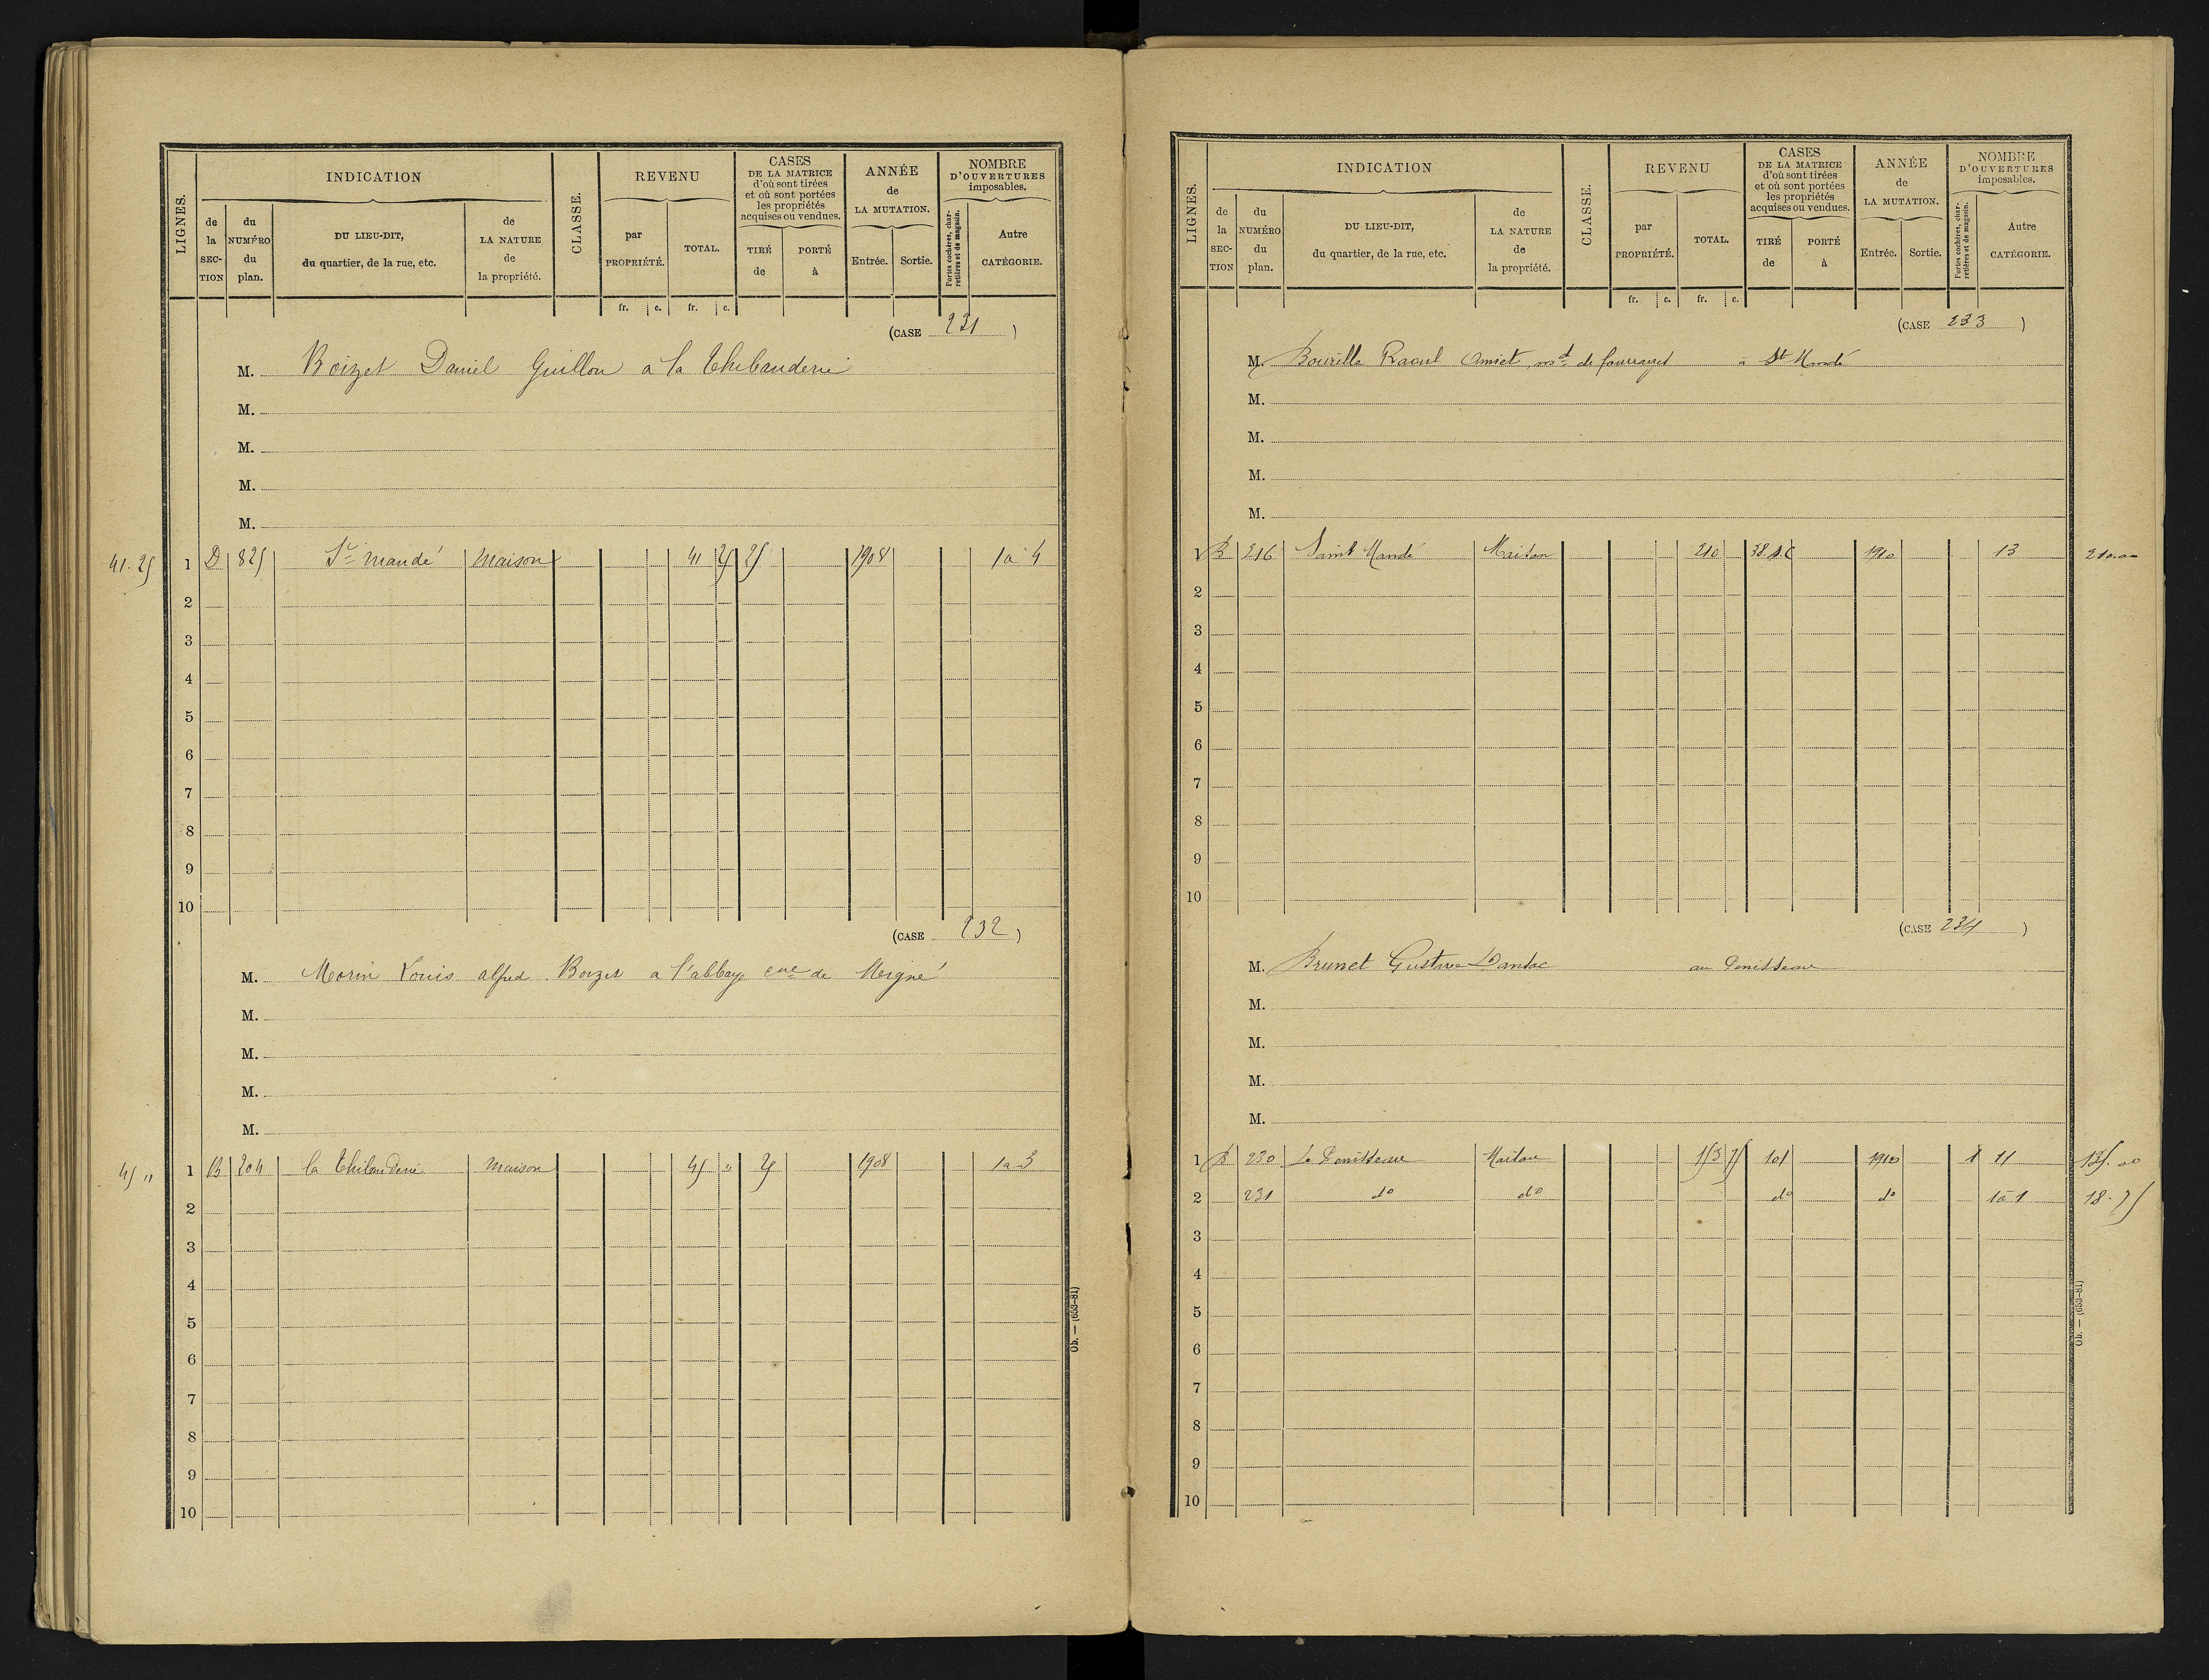 LIGNES.
INDICATION
CLASSE.
REVENU
CASES
DE LA MATRICE
d'où sont tirées
et où sont portées
les propriétés
acquises ou vendues.
ANNÉE
de
LA MUTATION.
NOMBRE
D'OUVERTURES
imposables.
de la SECTION
du NUMÉRO du plan.
DU LIEU-DIT,
du quartier, de la rue, etc.
de LA NATURE de la propriété.
par PROPRIÉTÉ.
TOTAL.
TIRÉ de
PORTÉ à
Entrée.
Sortie.
Portes cochères, charretières et de magasin.
Autre CATÉGORIE.
fr. c. fr. c.
(CASE 231)
M. Boizet Daniel Guillon a la Thibauderie
M.
M.
M.
M.
41.25 1 D 825 St Mandé Maison 41 25 25 1908 1 a 4
2
3
4
5
6
7
8
9
10
(CASE 232)
M. Morin Louis alfred Boizet a l'abbaye cne de Migné
M.
M.
M.
M.
45 " 1 B 204 la Thibauderie Maison 45 " 25 1908 1 a 3
2
3
4
5
6
7
8
9
10
Ob. — (653-81)
LIGNES.
INDICATION
CLASSE.
REVENU
CASES
DE LA MATRICE
d'où sont tirées
et où sont portées
les propriétés
acquises ou vendues.
ANNÉE
de
LA MUTATION.
NOMBRE
D'OUVERTURES
imposables.
de la SECTION
du NUMÉRO du plan.
DU LIEU-DIT,
du quartier, de la rue, etc.
de LA NATURE de la propriété.
par PROPRIÉTÉ.
TOTAL.
TIRÉ de
PORTÉ à
Entrée.
Sortie.
Portes cochères, charretières et de magasin.
Autre CATÉGORIE.
fr. c. fr. c.
(CASE 233)
M. Raoul Amiet, md de fourrages à St Mandé
M.
M.
M.
M.
1 B 216 Saint Mandé Maison 210 38 1910 13 210.00
2
3
4
5
6
7
8
9
10
(CASE 234)
M. Brunet Gustave au Penisseau
M.
M.
M.
M.
1 B 230 Le Penisseau Maison 153 75 101 1910 1 11 135.00
2 231 do do do do 1 à 1 18.75
3
4
5
6
7
8
9
10
Ob. — (653-81)